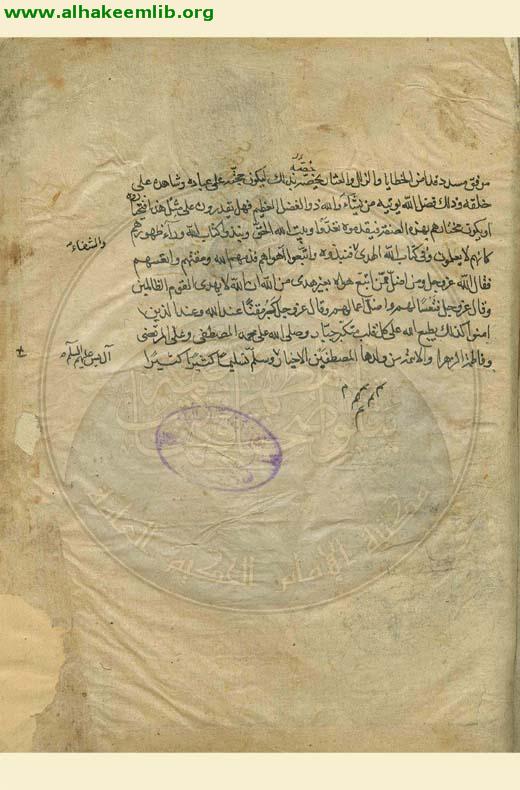 www.alhakeemlib.org
يخصّه
موفق مسدد قد امن الخطايا والزلل والعثار يخصه بذلك ليكون حجته على عباده وشاهده على
خلقه وذلك فضل الله يوتيه من يشاء والله ذو الفضل العظيم فهل يقدرون على مثل هذا فيختارونه
او يكون مختارهم بهذه الصفة فيقدمونه تعدوا وبيت الله الحق ونبذوا كتاب الله وراء ظهورهم
والشفاء
كانهم لا يعلمون وفي كتاب الله الهدى فنبذوه واتبعوا اهواهم فذمهم الله ومقتهم واتعسهم
فقال الله عز وجل ومن اضل ممن اتبع هواه بغير هدى من الله ان الله لا يهدى القوم الظالمين
وقال عز وجل فتعسا لهم واضل اعمالهم وقال عز وجل كبر مقتا عند الله وعند الذين
امنوا كذلك يطبع الله على كل قلب متكبر جبار وصلى الله على محمد المصطفى وعلى المرتضى
وفاطمة الزهرا والائمة من ولدها المصطفين الاخيار وسلم تسليما كثيرا كثيرا
آل يس عليهم السلم
م م م م م
مكتبة الإمام الحكيم العامة